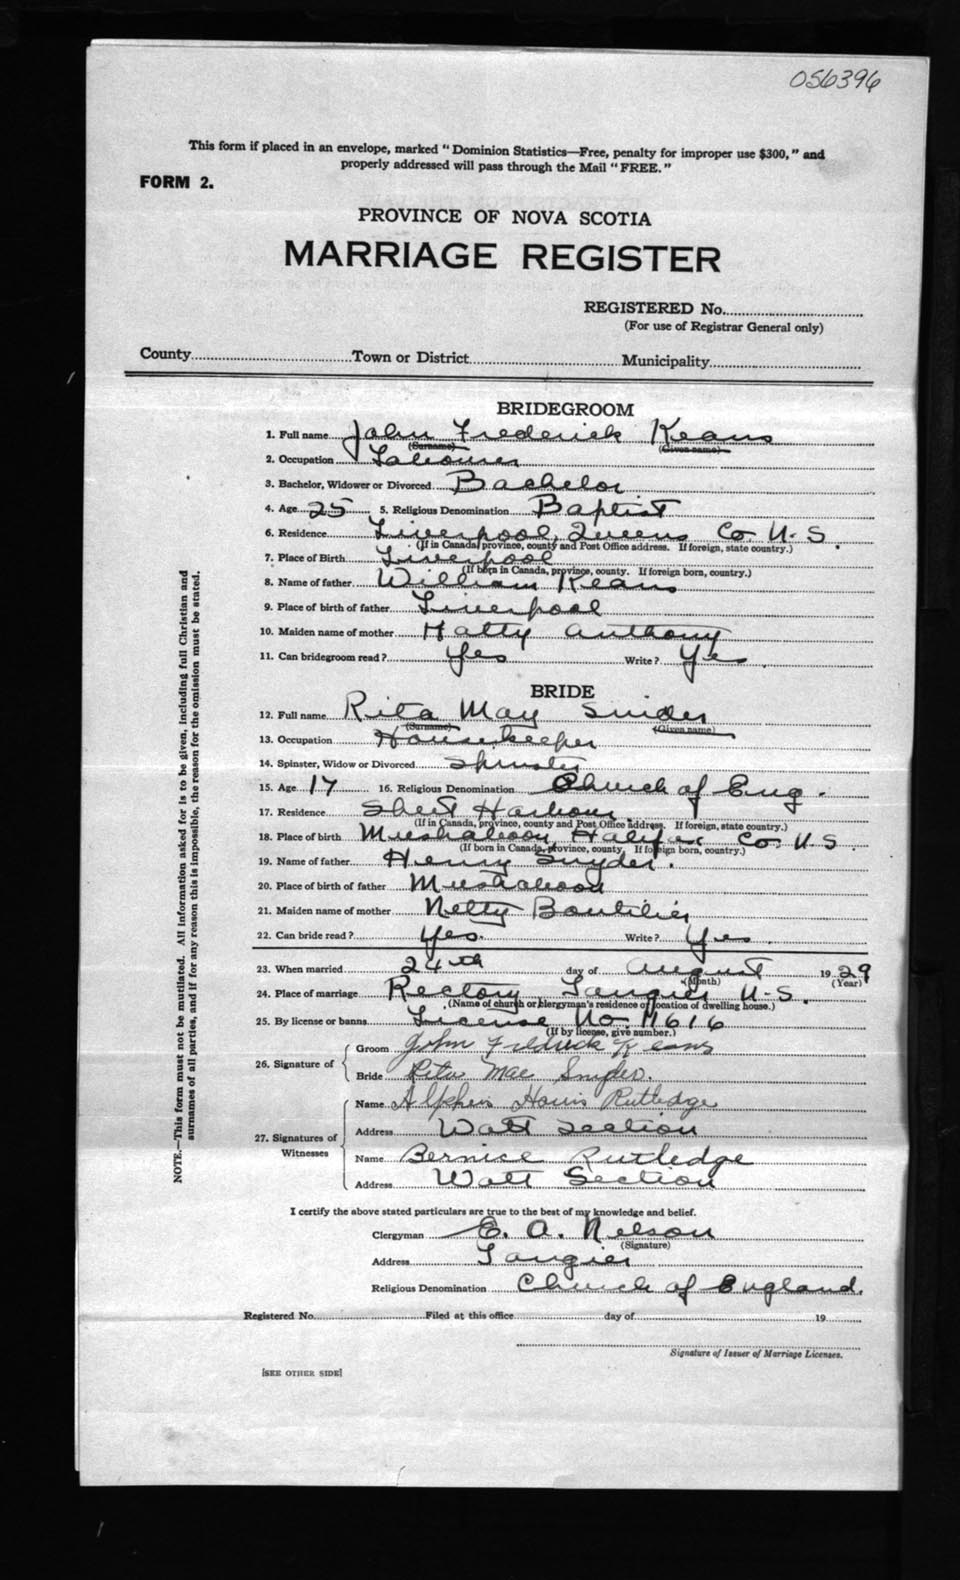 056396
This form if placed in an envelope, marked "Dominion Statistics—Free, penalty for improper use $300," and
properly addressed will pass through the Mail "FREE."
FORM 2.
PROVINCE OF NOVA SCOTIA
MARRIAGE REGISTER
REGISTERED No.
(For use of Registrar General only)
County Town or District Municipality
BRIDEGROOM
1. Full name John Frederick Keans
(Surname) (Given name)
2. Occupation Labourer
3. Bachelor, Widower or Divorced Bachelor
4. Age 25 5. Religious Denomination Baptist
6. Residence Liverpool, Queens Co N.S.
(If in Canada, province, county and Post Office address. If foreign, state country.)
7. Place of Birth Liverpool
(If born in Canada, province, county. If foreign born, country.)
8. Name of father William Keans
9. Place of birth of father Liverpool
10. Maiden name of mother Hatty Anthony
11. Can bridegroom read? Yes Write? Yes.
BRIDE
12. Full name Rita May Snider
(Surname) (Given name)
13. Occupation Housekeeper
14. Spinster, Widow or Divorced Spinster
15. Age 17 16. Religious Denomination Church of Eng.
17. Residence Sheet Harbour.
(If in Canada, province, county and Post Office address. If foreign, state country.)
18. Place of birth Mushaboom, Halifax Co. N.S
(If born in Canada, province, county. If foreign born, country.)
19. Name of father Henry Snyder.
20. Place of birth of father Mushaboom
21. Maiden name of mother Netty Boutilier
22. Can bride read? Yes. Write? Yes.
23. When married 24th day of August 1929
(Month) (Year)
24. Place of marriage Rectory Tangier N.S.
(Name of church or clergyman's residence or location of dwelling house.)
25. By license or banns License No. 11616
(If by license, give number.)
26. Signature of Groom John Fredrick Keans
Bride Rita Mae Snyder.
27. Signatures of Witnesses Name Harris Rutledge
Address Watt Section
Name Bernice Rutledge
Address Watt Section
I certify the above stated particulars are true to the best of my knowledge and belief.
Clergyman E. A. Nelson
(Signature)
Address Tangier
Religious Denomination Church of England.
Registered No. Filed at this office day of 19
Signature of Issuer of Marriage Licenses.
[SEE OTHER SIDE]
NOTE.—This form must not be mutilated. All information asked for is to be given, including full Christian and
surnames of all parties, and if for any reason this is impossible, the reason for the omission must be stated.